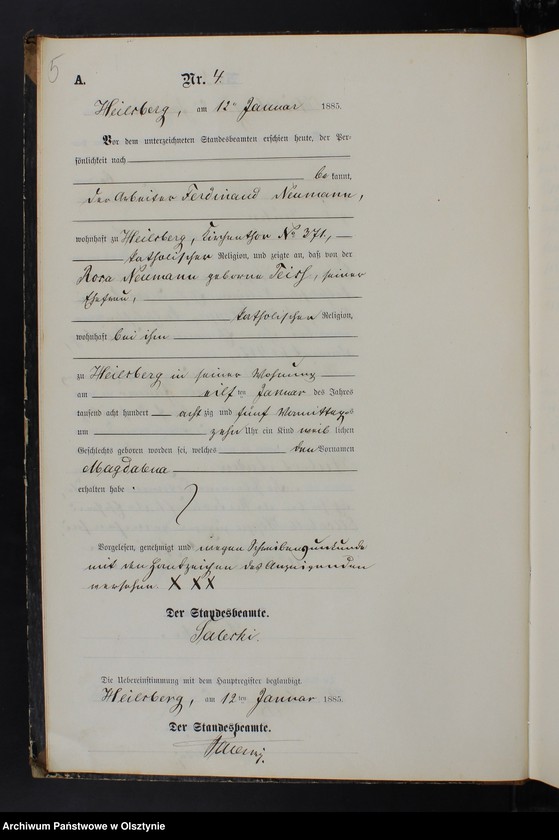 5
A. Nr. 4.
Heilsberg, am 12ten Januar 1885.
Vor dem unterzeichneten Standesbeamten erschien heute, der Per-
sönlichkeit nach
be kannt,
der Arbeiter Ferdinand Neumann,
wohnhaft zu Heilsberg, Kirchenthor No 371,
katholischer Religion, und zeigte an, daß von der
Rosa Neumann geborne Teich, seiner
Ehefrau,
katholischer Religion,
wohnhaft bei ihm
zu Heilsberg in seiner Wohnung
am eilf ten Januar des Jahres
tausend acht hundert acht zig und fünf Vormittags
um zehn Uhr ein Kind weib lichen
Geschlechts geboren worden sei, welches den Vornamen
Magdalena
erhalten habe.
Vorgelesen, genehmigt und wegen Schreibensunkunde
mit den Handzeichen des Anzeigenden
versehen. X X X
Der Standesbeamte.
Die Uebereinstimmung mit dem Hauptregister beglaubigt.
Heilsberg, am 12ten Januar 1885.
Der Standesbeamte.
Archiwum Państwowe w Olsztynie